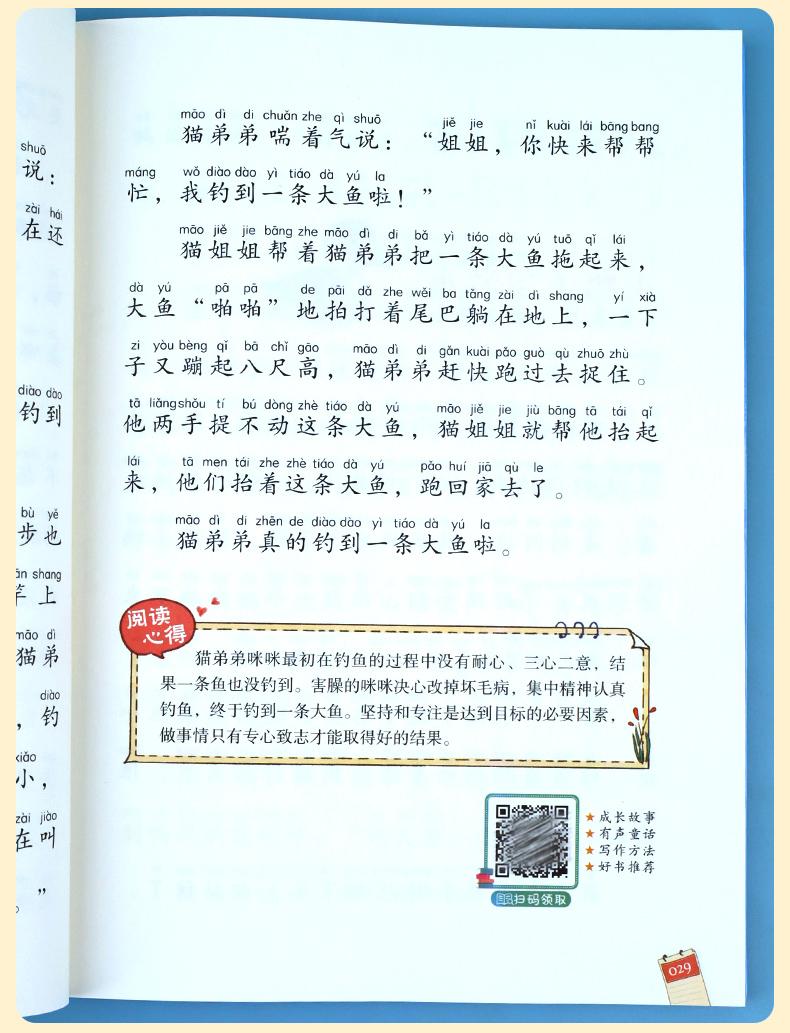 shuō
说：
zài hái
在还
diào dào
钓到
bù yě
步也
shang
竿上
māo dì
猫弟
diào
，钓
xiǎo
小，
zài jiào
在叫
”
māo dì di chuǎn zhe qì shuō jiě jie nǐ kuài lái bāng bang
猫弟弟喘着气说：“姐姐，你快来帮帮
máng wǒ diào dào yì tiáo dà yú la
忙，我钓到一条大鱼啦！”
māo jiě jie bāng zhe māo dì di bǎ yì tiáo dà yú tuō qǐ lái
猫姐姐帮着猫弟弟把一条大鱼拖起来，
dà yú pā pā de pāi dǎ zhe wěi ba tǎng zài dì shang yí xià
大鱼“啪啪”地拍打着尾巴躺在地上，一下
zi yòu bèng qǐ bā chǐ gāo māo dì di gǎn kuài pǎo guò qù zhuō zhù
子又蹦起八尺高，猫弟弟赶快跑过去捉住。
tā liǎng shǒu tí bú dòng zhè tiáo dà yú māo jiě jie jiù bāng tā tái qǐ
他两手提不动这条大鱼，猫姐姐就帮他抬起
lái tā men tái zhe zhè tiáo dà yú pǎo huí jiā qù le
来，他们抬着这条大鱼，跑回家去了。
māo dì di zhēn de diào dào yì tiáo dà yú la
猫弟弟真的钓到一条大鱼啦。
阅读
心得
猫弟弟咪咪最初在钓鱼的过程中没有耐心、三心二意，结
果一条鱼也没钓到。害臊的咪咪决心改掉坏毛病，集中精神认真
钓鱼，终于钓到一条大鱼。坚持和专注是达到目标的必要因素，
做事情只有专心致志才能取得好的结果。
★成长故事
★有声童话
★写作方法
★好书推荐
扫码领取
029